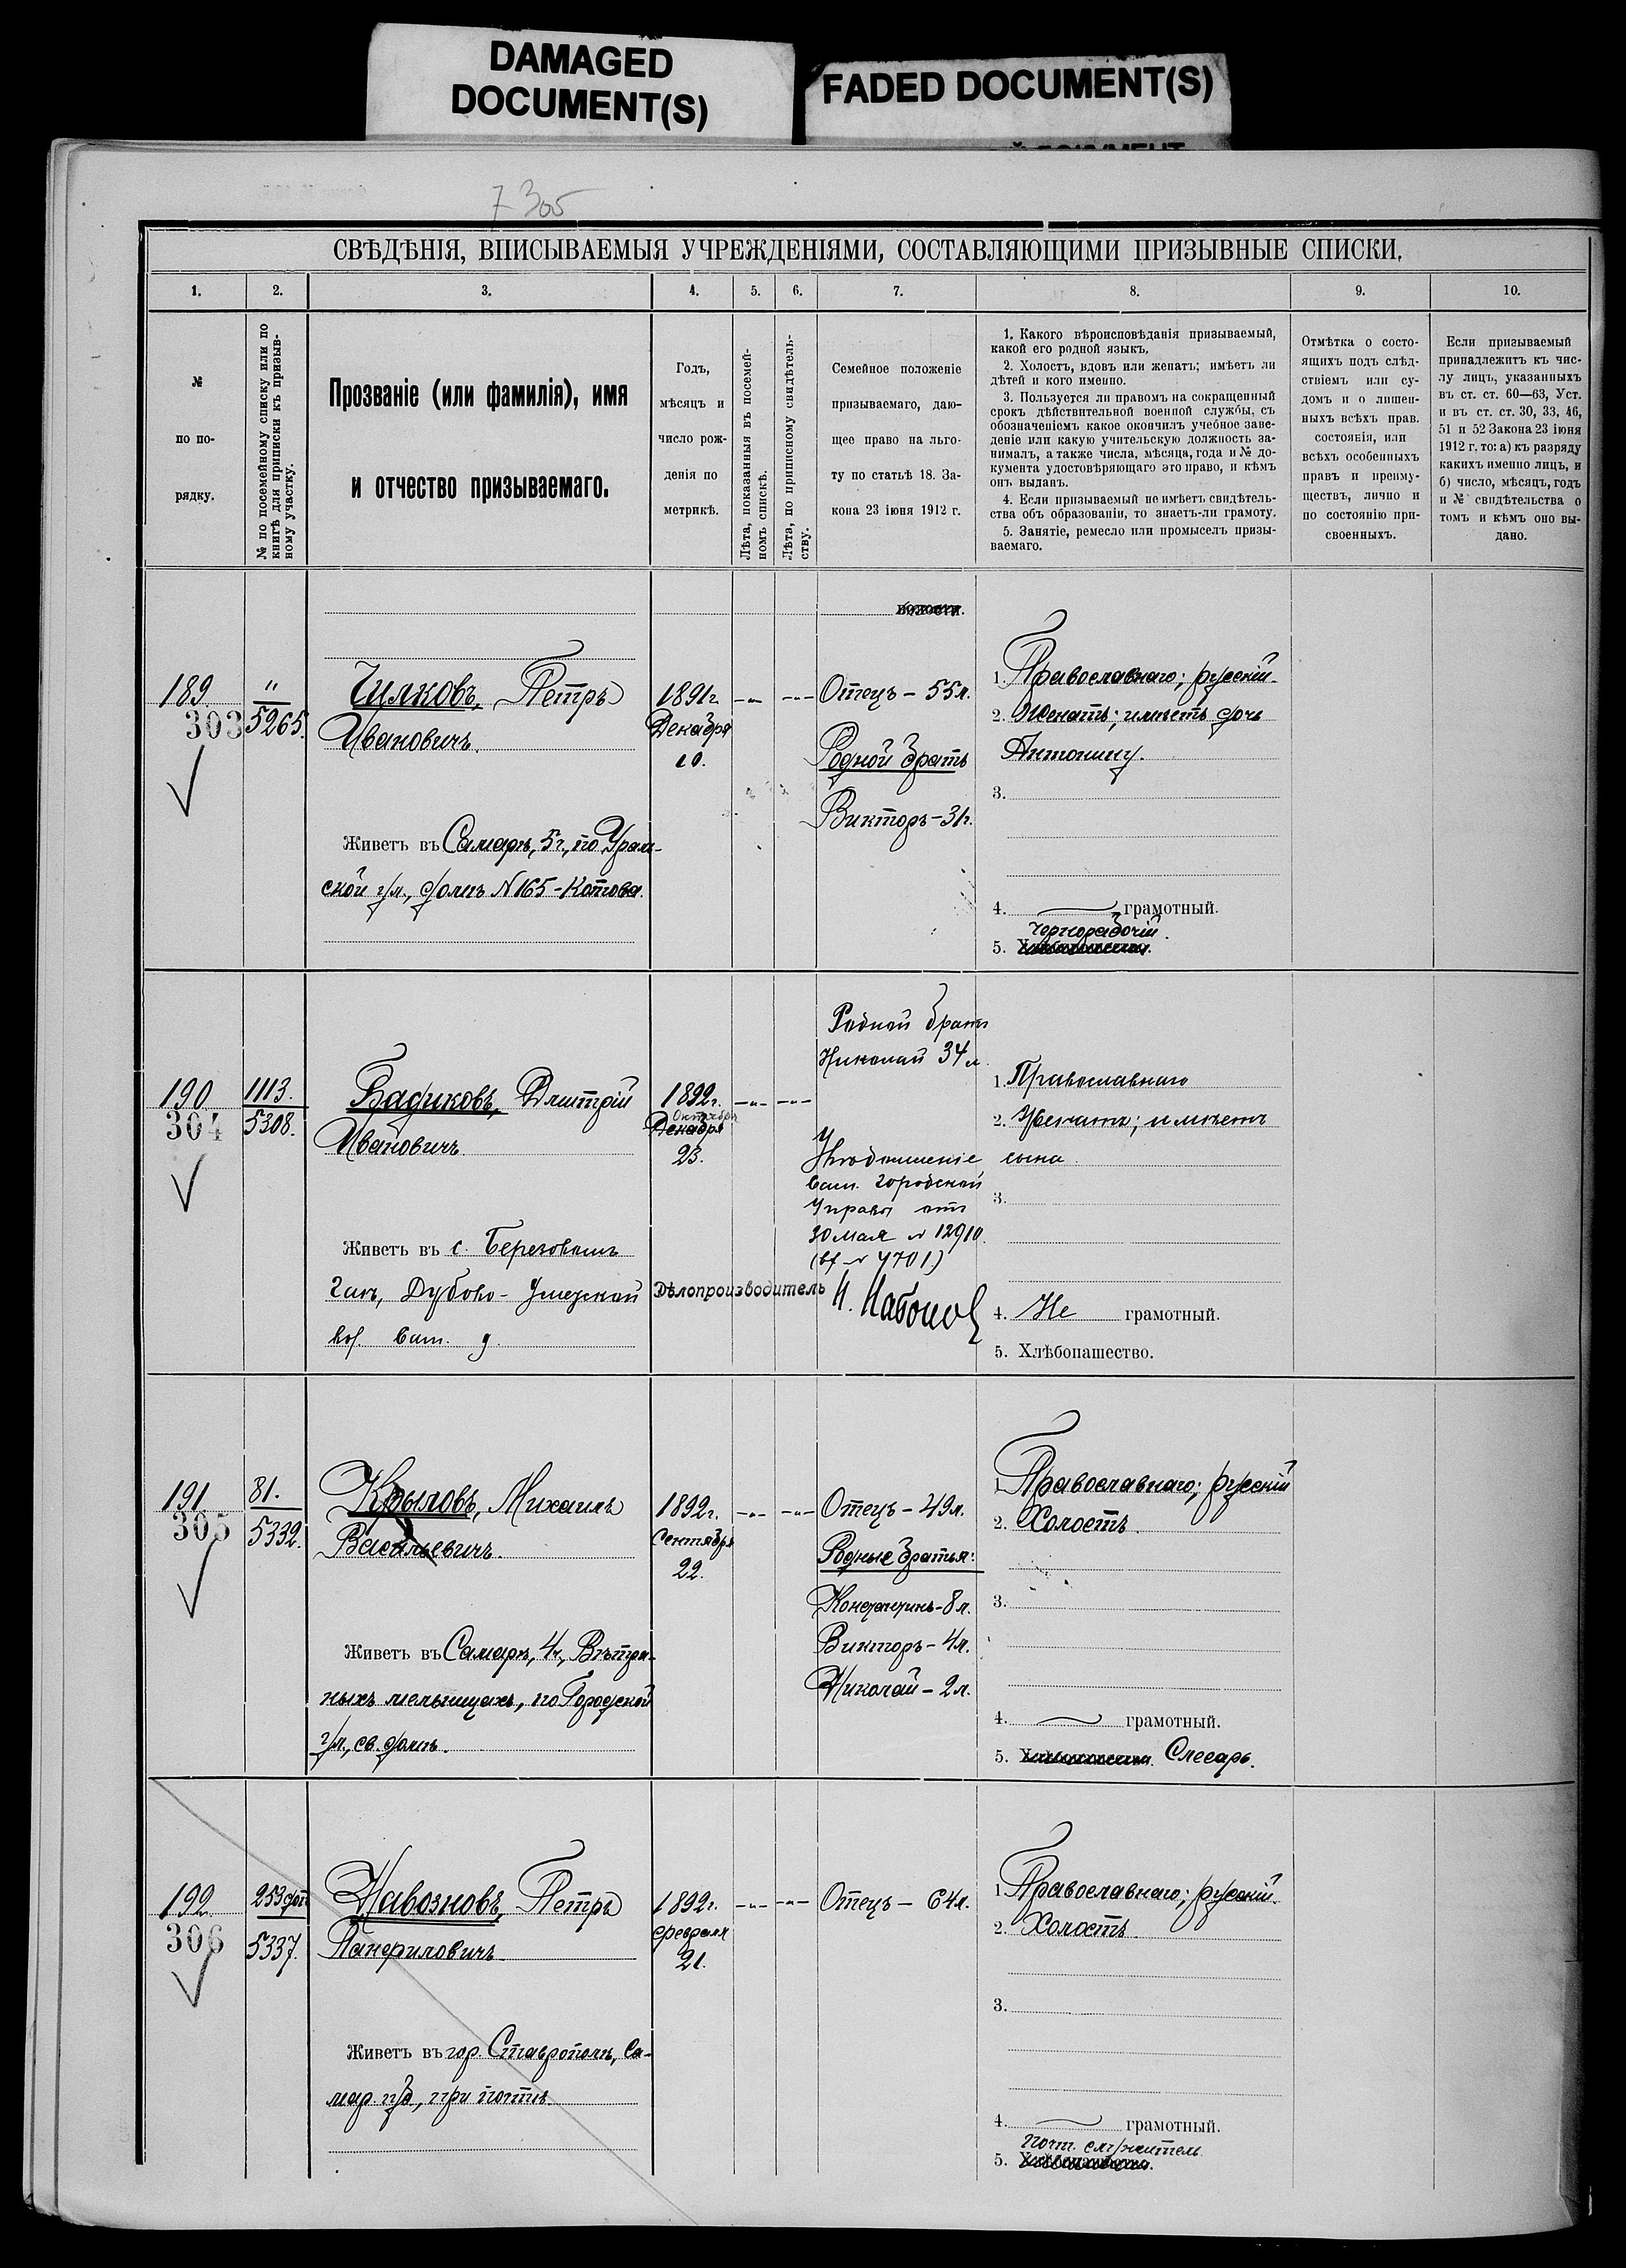 DAMAGED
DOCUMENT(S)
FADED DOCUMENT(S)
7 305
СВѢДѢНІЯ, ВПИСЫВАЕМЫЯ УЧРЕЖДЕНІЯМИ, СОСТАВЛЯЮЩИМИ ПРИЗЫВНЫЕ СПИСКИ.
1. 2. 3. 4. 5. 6. 7. 8. 9. 10.
№
по по-
рядку.
№ по посемейному списку или по
книгѣ для приписки къ призыв-
ному участку.
Прозваніе (или фамилія), имя
и отчество призываемаго.
Годъ,
мѣсяцъ и
число рож-
денія по
метрикѣ.
Лѣта, показанныя въ посемей-
номъ спискѣ.
Лѣта, по приписному свидѣтель-
ству.
Семейное положеніе
призываемаго, даю-
щее право на льго-
ту по статьѣ 18. За-
кона 23 іюня 1912 г.
1. Какого вѣроисповѣданія призываемый,
какой его родной языкъ.
2. Холостъ, вдовъ или женатъ; имѣетъ ли
дѣтей и кого именно.
3. Пользуется ли правомъ на сокращенный
срокъ дѣйствительной военной службы, съ
обозначеніемъ какое окончилъ учебное заве-
деніе или какую учительскую должность за-
нималъ, а также числа, мѣсяца, года и № до-
кумента удостовѣряющаго это право, и кѣмъ
онъ выданъ.
4. Если призываемый не имѣетъ свидѣтель-
ства объ образованіи, то знаетъ-ли грамоту.
5. Занятіе, ремесло или промыселъ призы-
ваемаго.
Отмѣтка о состо-
ящихъ подъ слѣд-
ствіемъ или су-
домъ и о лишен-
ныхъ всѣхъ прав.
состоянія, или
всѣхъ особенныхъ
правъ и преиму-
ществъ, лично и
по состоянію при-
своенныхъ.
Если призываемый
принадлежитъ къ чис-
лу лицъ, указанныхъ
въ ст. ст. 60—63, Уст.
и въ ст. ст. 30, 33, 46,
51 и 52 Закона 23 іюня
1912 г. то: а) къ разряду
какихъ именно лицъ, и
б) число, мѣсяцъ, годъ
и № свидѣтельства о
томъ и кѣмъ оно вы-
дано.
волости.
189.
303
"
5265.
Чилковъ, Петръ
Ивановичъ.
Живетъ въ Самарѣ, 5 ч., по Ураль-
ской ул., домъ № 165 - Котова.
1891 г.
Декабря
10.
-"- -"-
Отецъ - 55 л.
Родной братъ
Викторъ - 3 г.
1. Православнаго; русскій.
2. Женатъ; имѣетъ дочь
Антонину.
3.
4. грамотный.
Чернорабочій.
5.
190
304
1113.
5308.
Бадиковъ, Дмитрій
Ивановичъ.
Живетъ въ с. Березовомъ
Гаѣ, Дубово-Уметской
вол. Сам. у.
1892 г.
Октября
Декабря
23.
-"- -"-
Родной братъ
Николай 34 л.
Увѣдомленіе
Сам. Городской
Управы отъ
30 мая № 12910
(вх № 4701)
Дѣлопроизводитель
1. Православнаго
2. Женатъ; имѣетъ
сына.
3.
4. Не грамотный.
5. Хлѣбопашество.
191.
305
81.
5332.
Крыловъ, Михаилъ
Васильевичъ.
Живетъ въ Самарѣ, 4 ч., Вѣтря-
ныхъ мельницахъ, по Городской
ул., св. домъ.
1892 г.
Сентября
22.
-"- -"-
Отецъ - 49 л.
Родные братья:
Константинъ - 8 л.
Викторъ - 4 л.
Николай - 2 л.
1. Православнаго; русскій
2. Холостъ.
3.
4. грамотный.
5. Слесарь.
192.
306
253
5337.
Навозновъ, Петръ
Панфиловичъ.
Живетъ въ гор. Ставрополѣ, Са-
мар. губ., при почтѣ.
1892 г.
февраля
21.
-"- -"-
Отецъ - 64 л.
1. Православнаго; русскій.
2. Холостъ.
3.
4. грамотный.
Почт. служитель
5.